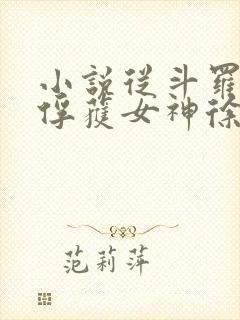 小說從斗羅
俘獲女神徐
范莉萍